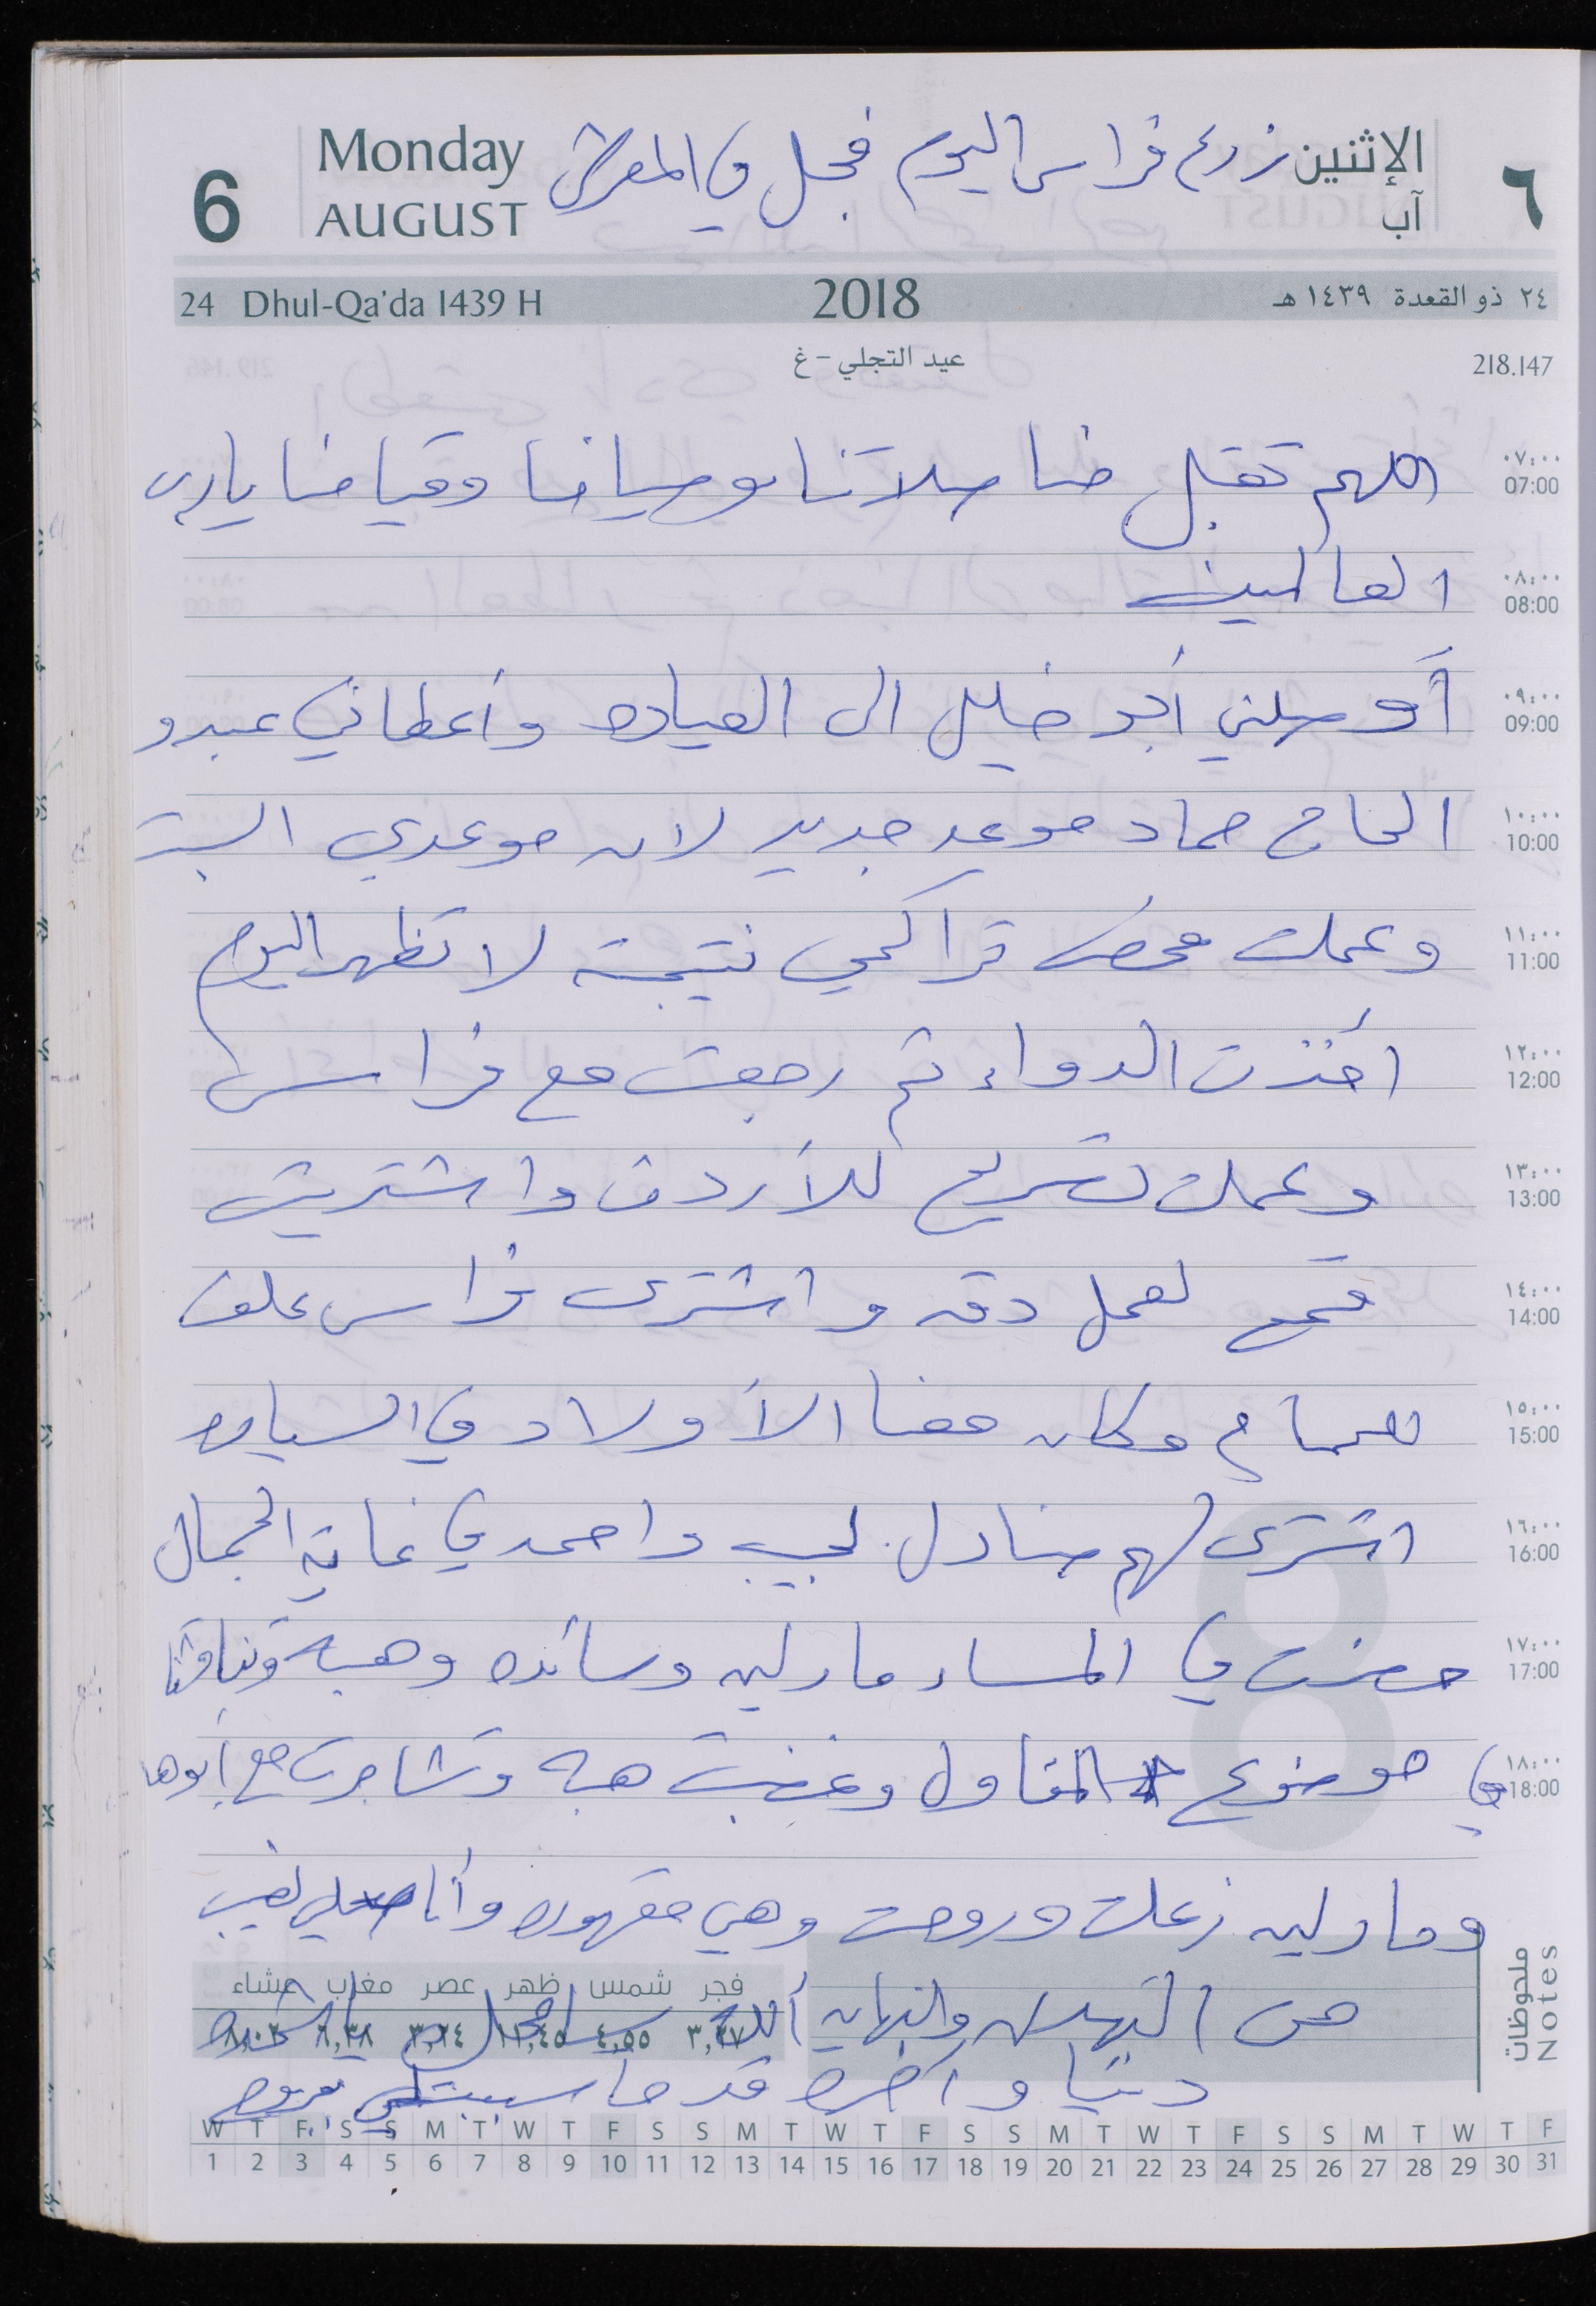 6 Monday AUGUST
الإثنين ٦ آب
زرع فراس اليوم فجل في المعرش
24 Dhul-Qa'da 1439 H 2018 ٢٤ ذو القعدة ١٤٣٩ هـ
عيد التجلي - غ 218.147
٠٧:٠٠ 07:00 اللهم تقبل منا صلاتنا وصيامنا وقيامنا يارب
٠٨:٠٠ 08:00 العالمين
٠٩:٠٠ 09:00 أوصلني أبو خليل الى العياده وأعطاني عبدو
١٠:٠٠ 10:00 الحاج حماد موعد جديد لان موعدي السبت
١١:٠٠ 11:00 وعملت فحص تراكمي نتيجته لا تظهر اليوم
١٢:٠٠ 12:00 أخذت الدواء ثم رجعت مع فراس
١٣:٠٠ 13:00 وعملت تصريح للأردن واشتريت
١٤:٠٠ 14:00 قمح لعمل دقه واشترى فراس علف
١٥:٠٠ 15:00 للحمام وكان معنا الأولاد في السياره
١٦:٠٠ 16:00 اشترى لهم صنادل لحبيب واحمد في غاية الجمال
١٧:٠٠ 17:00 حضرت في المساء مادلين وسائده وهبه وتناقشنا
١٨:٠٠ 18:00 في موضوع المقاول وغضبت هبه وتشاجرت مع أبوها
ومادلين زعلت وروحت وهي مقهوره وأنا
من التهدس والنهايه الله
دنيا وآخره قد ما
ملحوظات Notes
فجر شمس ظهر عصر مغرب عشاء
٣,٣٧ ٤,٥٥ ١١,٤٥ ٣,٢٤ ٦,٣٨ ٨,٠٢
W T F S S M T W T F S S M T W T F S S M T W T F S S M T W T F
1 2 3 4 5 6 7 8 9 10 11 12 13 14 15 16 17 18 19 20 21 22 23 24 25 26 27 28 29 30 31